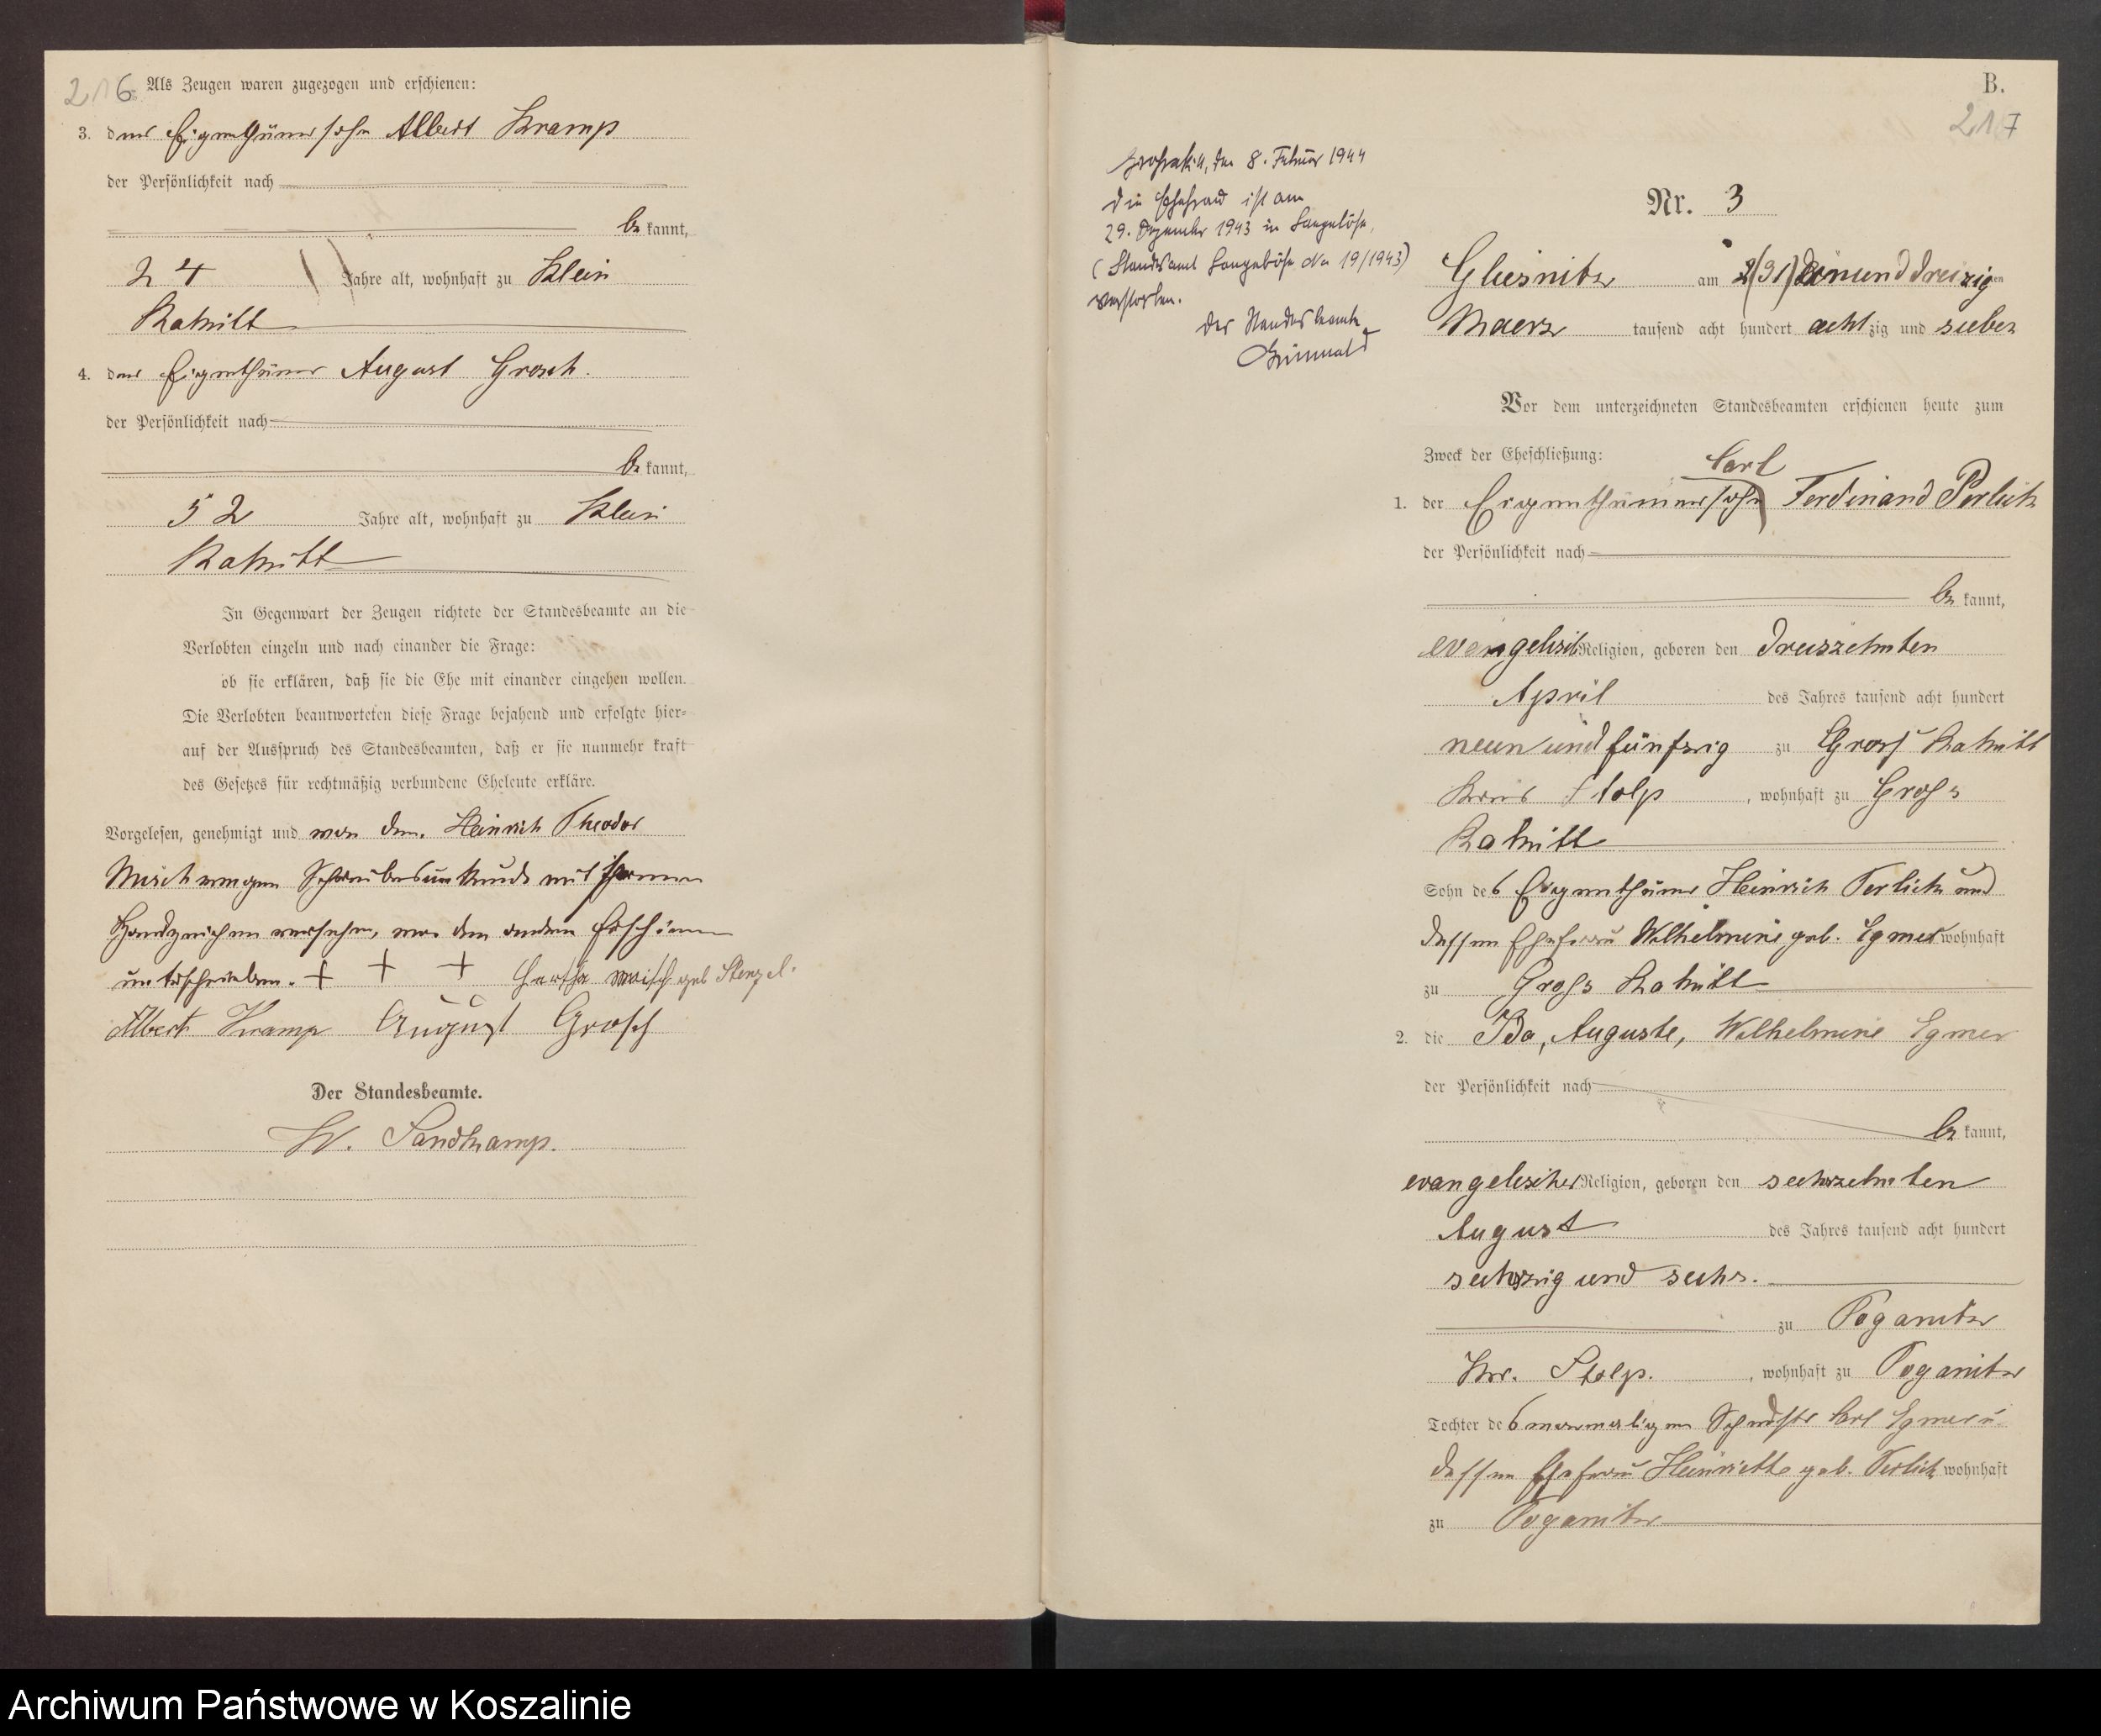 216
Als Zeugen waren zugezogen und erschienen:
3. der Eigenthümersohn Albert Kramp
der Persönlichkeit nach
be kannt,
24 Jahre alt, wohnhaft zu Klein
Rakitt
4. der Eigenthümer August Grosch.
der Persönlichkeit nach
be kannt,
52 Jahre alt, wohnhaft zu Klein
Rakitt
In Gegenwart der Zeugen richtete der Standesbeamte an die
Verlobten einzeln und nach einander die Frage:
ob sie erklären, daß sie die Ehe mit einander eingehen wollen.
Die Verlobten beantworteten diese Frage bejahend und erfolgte hier-
auf der Ausspruch des Standesbeamten, daß er sie nunmehr kraft
des Gesetzes für rechtmäßig verbundene Eheleute erkläre.
Vorgelesen, genehmigt und von dem Heinrich Theodor
wegen Schreibensunkunde mit
Handzeichen versehen, von den andern
unterschrieben. + + + geb Stenzel.
Albert Kramp August Grosch
Der Standesbeamte.
W. Sandkamp.
B.
217
den 8. Februar 1944
Die Ehefrau ist am
29. Dezember 1943 in Langeböse,
(Standesamt Langeböse No 19/1943)
verstorben.
Der Standesbeamte
Grünwald
Nr. 3
Gliesnitz am (31) einunddreizig
Maerz tausend acht hundert achtzig und sieben
Vor dem unterzeichneten Standesbeamten erschienen heute zum
Zweck der Eheschließung:
Carl
1. der Eigenthümersohn Ferdinand Perlick
der Persönlichkeit nach
be kannt,
evangelisch Religion, geboren den dreizehnten
April des Jahres tausend acht hundert
neun und fünfzig zu Gross Rakitt
Kreis Stolp, wohnhaft zu Gross
Rakitt
Sohn des Eigenthümer Heinrich Perlick und
dessen Ehefrau Wilhelmine geb. Egmer wohnhaft
zu Gross Rakitt
2. die Ida, Auguste, Wilhelmine Egmer
der Persönlichkeit nach
be kannt,
evangelischer Religion, geboren den sechszehnten
August des Jahres tausend acht hundert
sechszig und sechs.
zu Poganitz
Kr. Stolp., wohnhaft zu Poganitz
Tochter des Carl Egmer u.
dessen Ehefrau Heinriette geb. Perlick wohnhaft
zu Poganitz
Archiwum Państwowe w Koszalinie